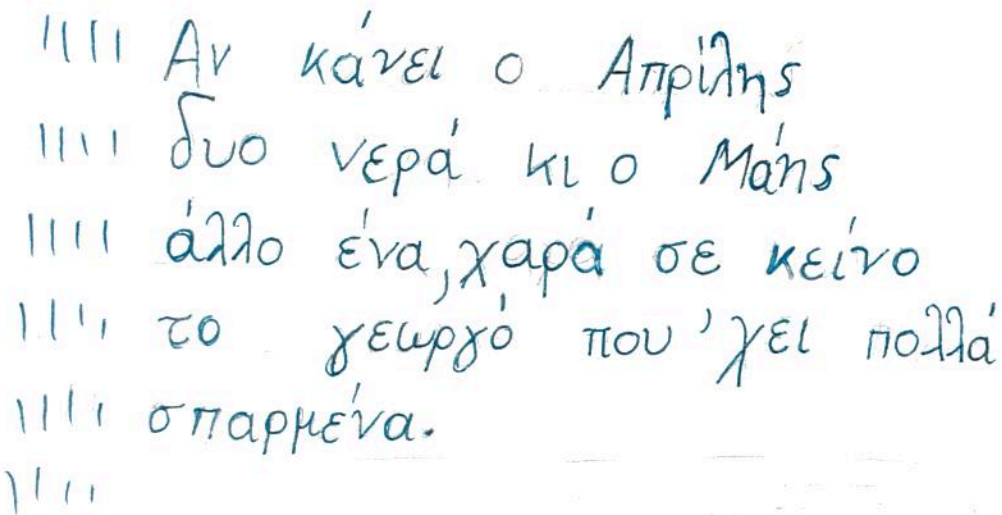 Αν κάνει ο Απρίλης
δυο νερά κι ο Μάης
άλλο ένα, χαρά σε κείνο
το γεωργό που 'χει πολλά
σπαρμένα.